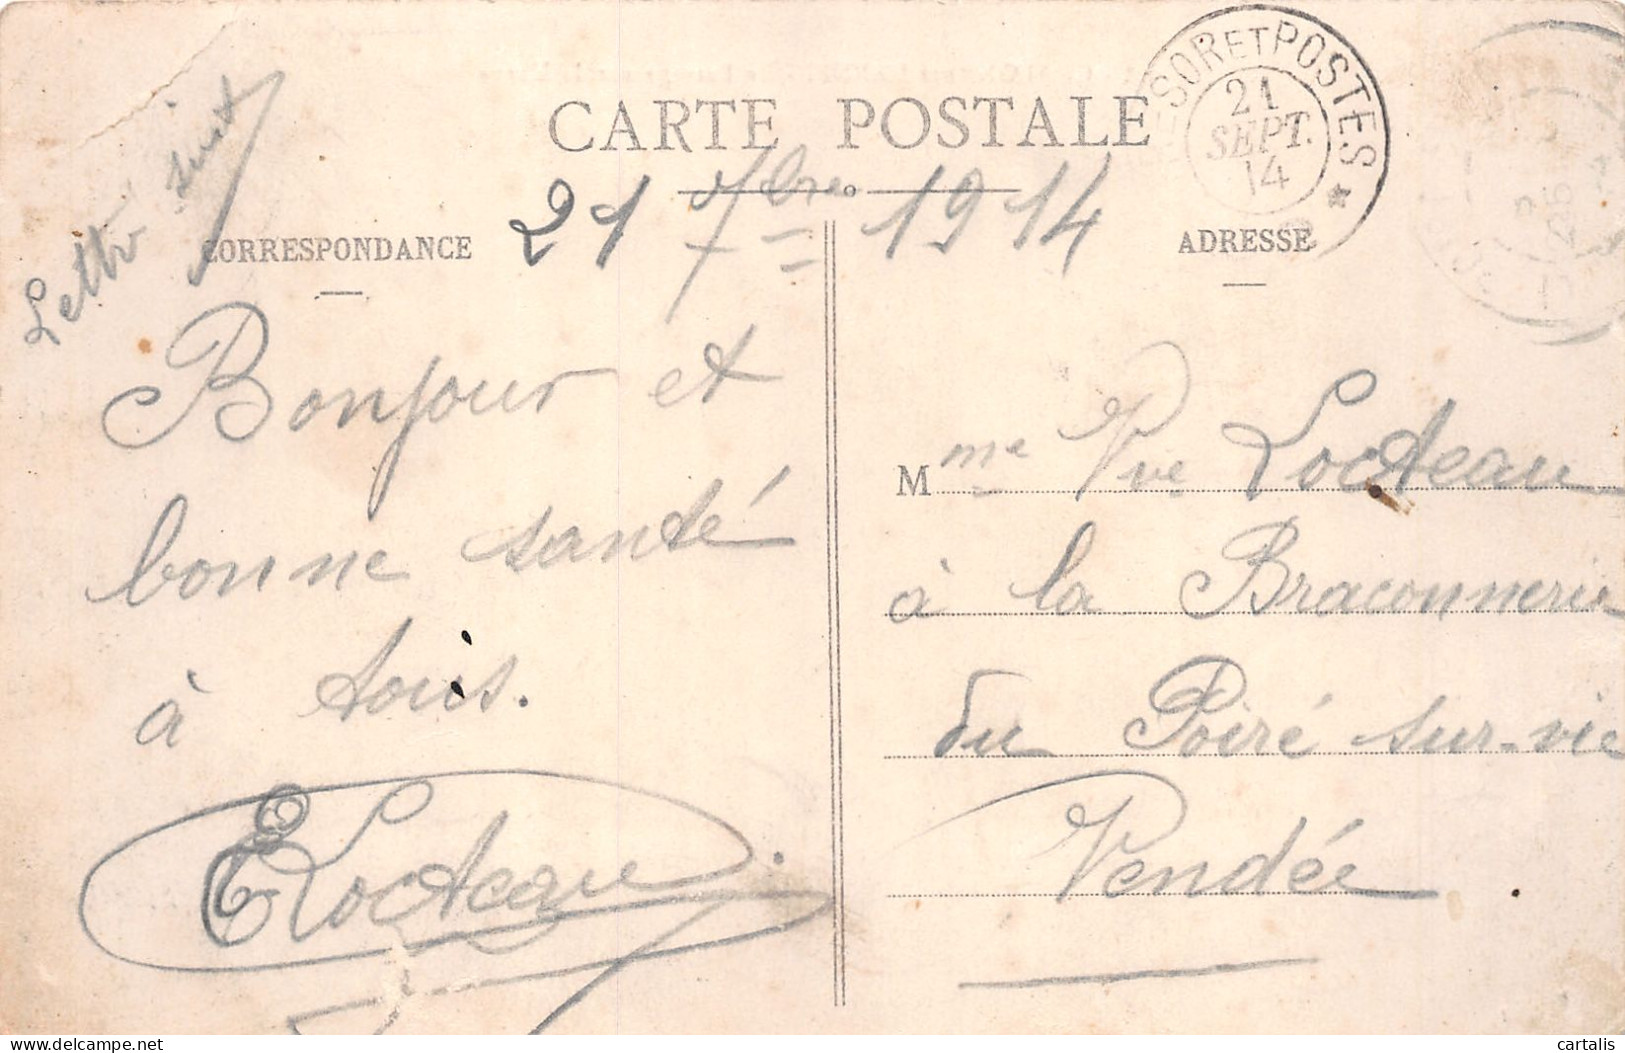 CARTE POSTALE
SOR ET POSTES
21
SEPT.
14
Lettre suit
21 7bre 1914
CORRESPONDANCE
ADRESSE
Bonjour et
bonne santé
à tous.
E Locteau
Mme Vve Locteau
à la Braconnerie
du Poiré sur-vie
Vendée
delcampe.net
cartalis